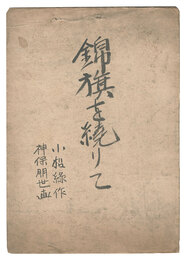 錦旗を繞りて
小松綠作
神保朋世画